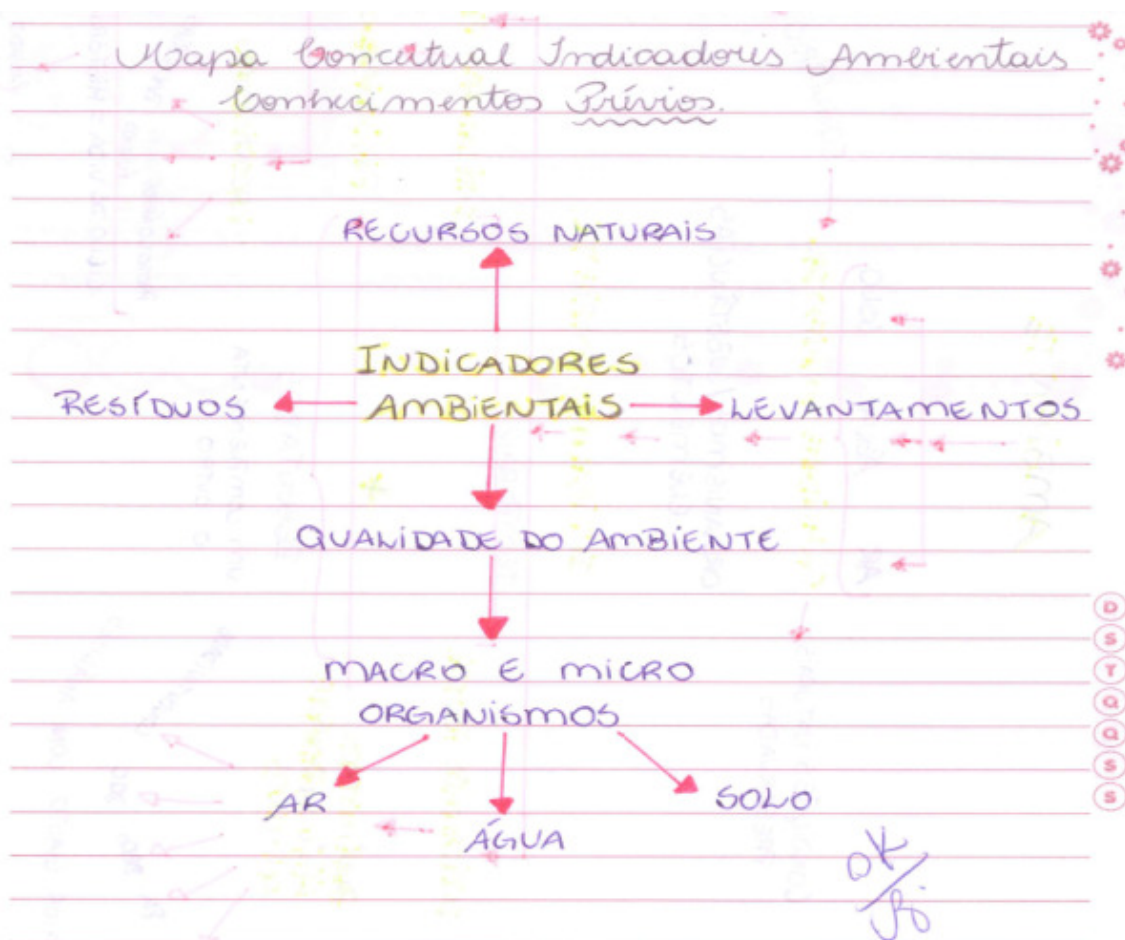 Mapa Conceitual Indicadores Ambientais
Conhecimentos Prévios.
RECURSOS NATURAIS
INDICADORES
RESÍDUOS AMBIENTAIS LEVANTAMENTOS
QUALIDADE DO AMBIENTE
MACRO E MICRO
ORGANISMOS
AR SOLO
ÁGUA
OK
D
S
T
Q
Q
S
S